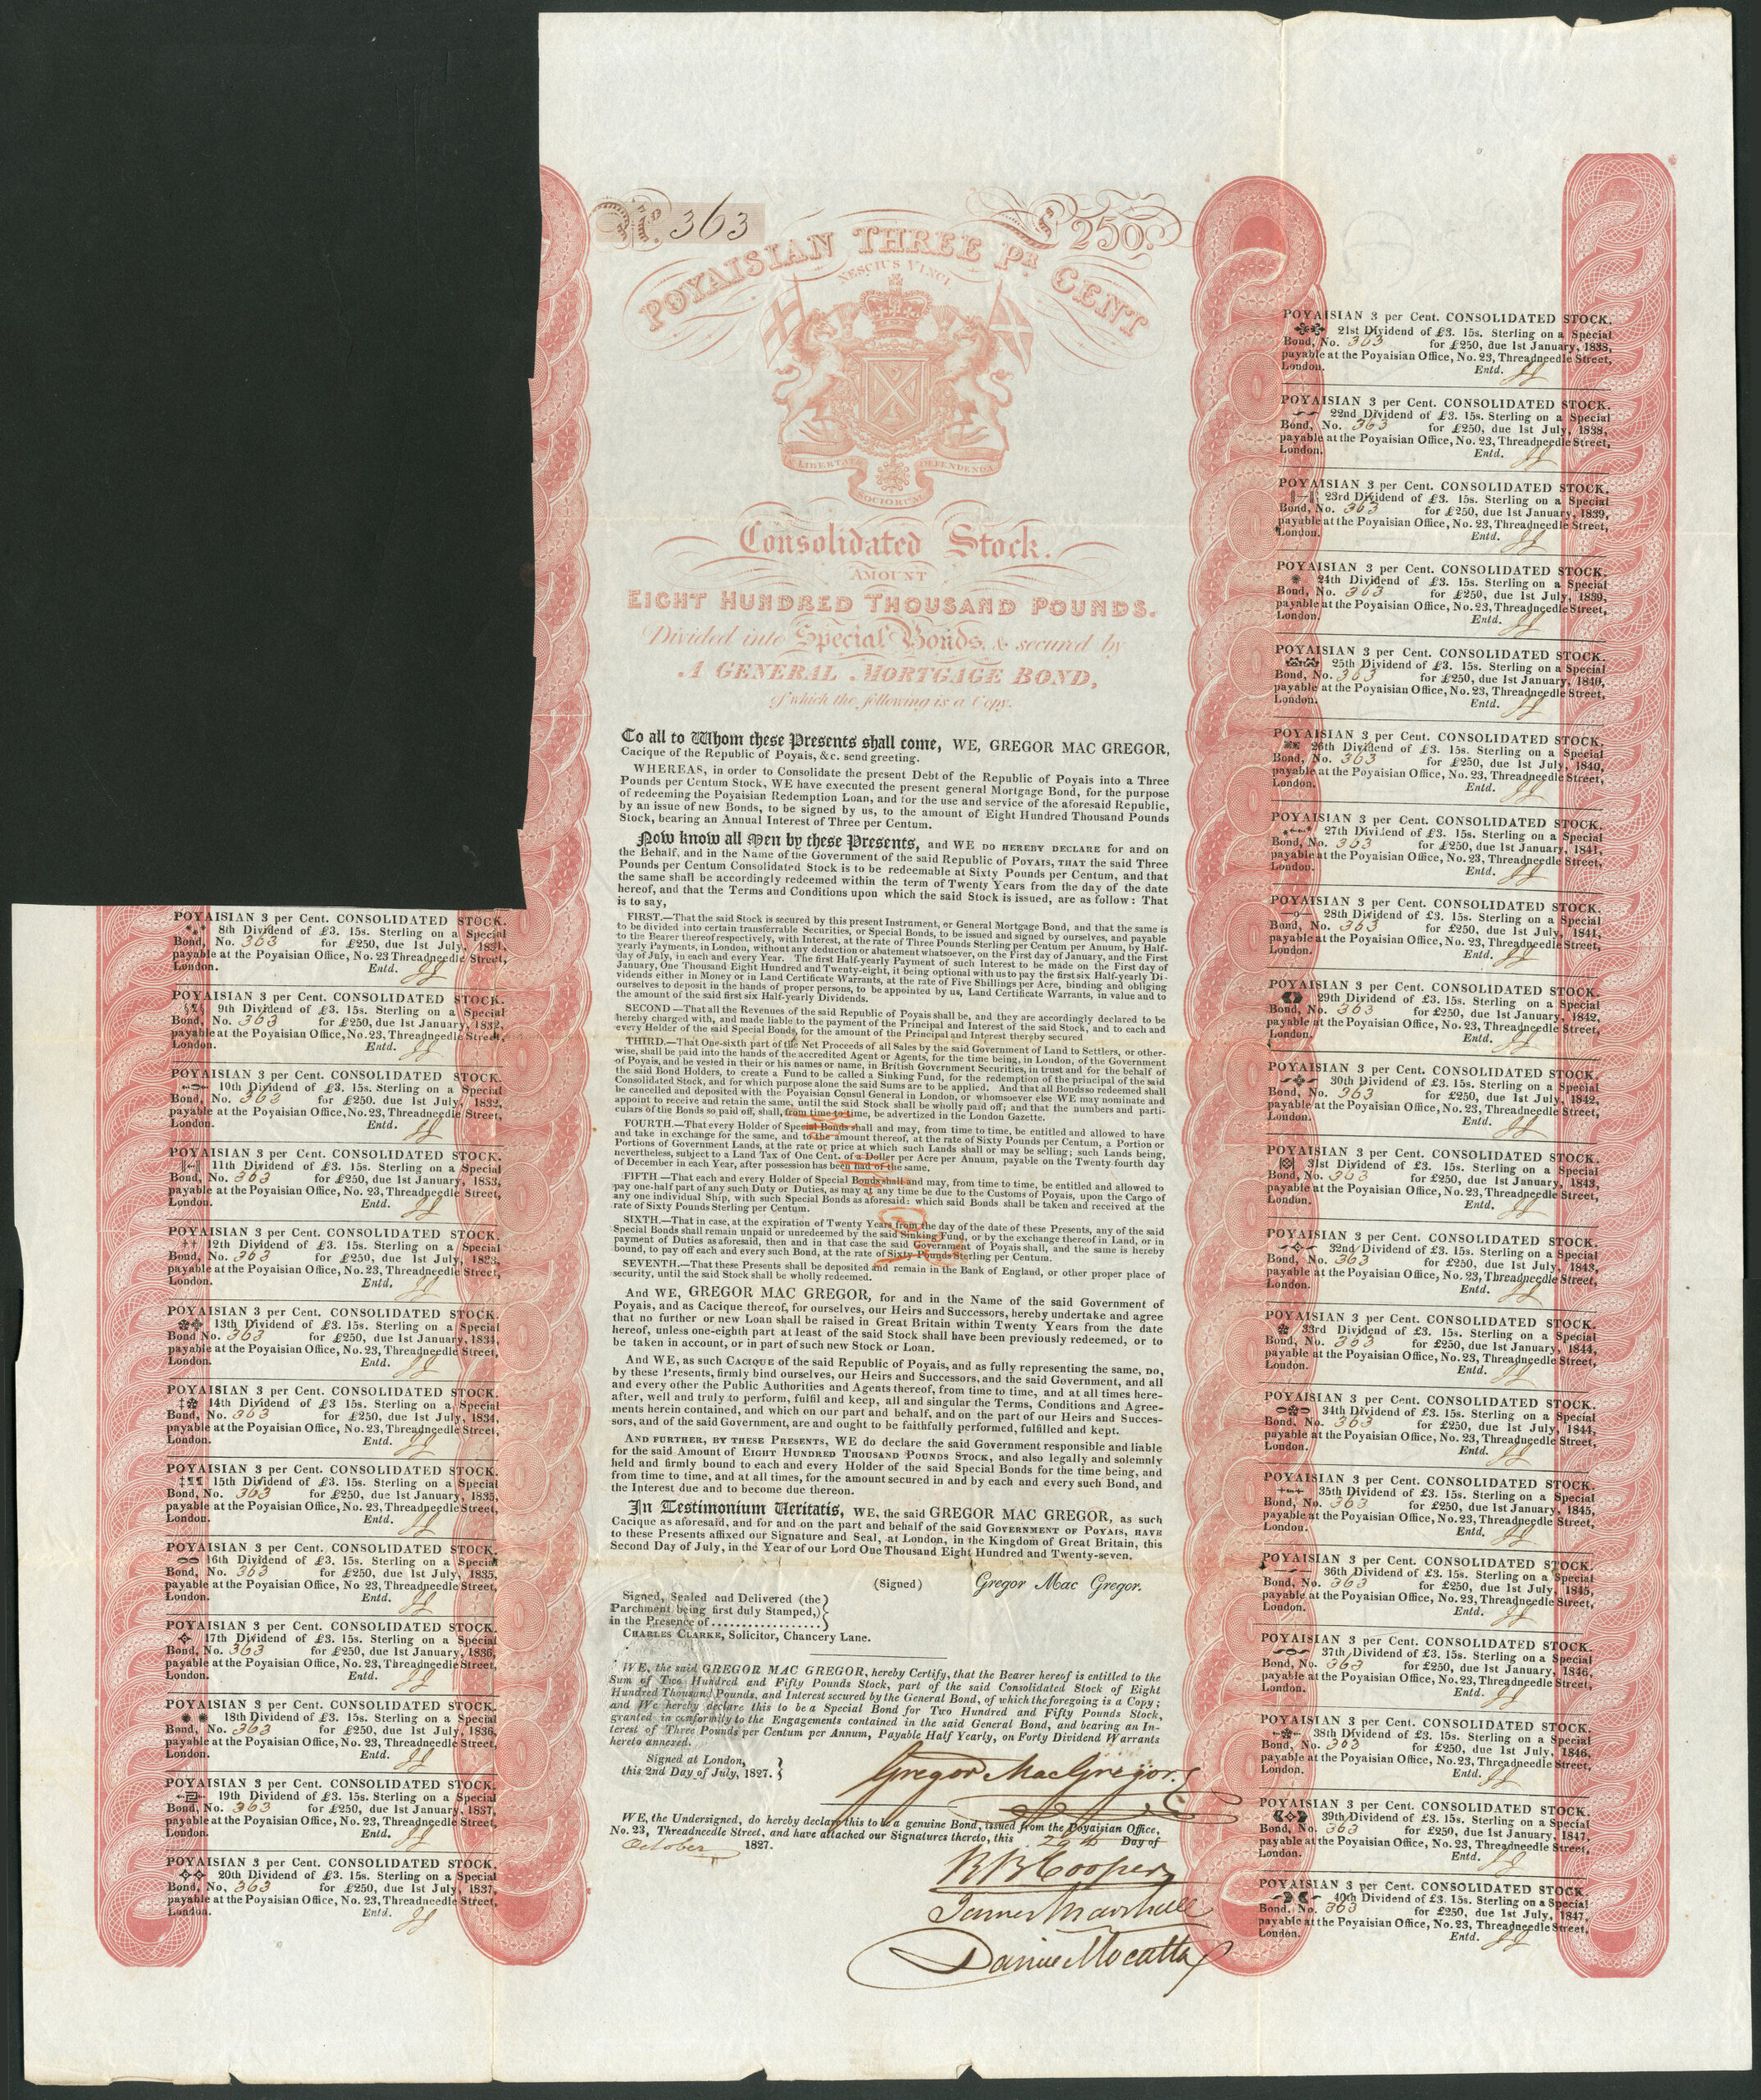 No. 363
£250.
POYAISIAN THREE PR CENT
NESCIUS VINCI
LIBERTAS DEFENDENDA
SOCIORUM
Consolidated Stock.
AMOUNT
EIGHT HUNDRED THOUSAND POUNDS.
Divided into Special Bonds, & secured by
A GENERAL MORTGAGE BOND,
of which the following is a Copy.
To all to Whom these Presents shall come, WE, GREGOR MAC GREGOR,
Cacique of the Republic of Poyais, &c. send greeting.
WHEREAS, in order to Consolidate the present Debt of the Republic of Poyais into a Three
Pounds per Centum Stock, WE have executed the present general Mortgage Bond, for the purpose
of redeeming the Poyaisian Redemption Loan, and for the use and service of the aforesaid Republic,
by an issue of new Bonds, to be signed by us, to the amount of Eight Hundred Thousand Pounds
Stock, bearing an Annual Interest of Three per Centum.
Now know all Men by these Presents, and WE DO HEREBY DECLARE for and on
the Behalf, and in the Name of the Government of the said Republic of POYAIS, THAT the said Three
Pounds per Centum Consolidated Stock is to be redeemable at Sixty Pounds per Centum, and that
the same shall be accordingly redeemed within the term of Twenty Years from the day of the date
hereof, and that the Terms and Conditions upon which the said Stock is issued, are as follow: That
is to say,
FIRST.—That the said Stock is secured by this present Instrument, or General Mortgage Bond, and that the same is
to be divided into certain transferrable Securities, or Special Bonds, to be issued and signed by ourselves, and payable
to the Bearer thereof respectively, with Interest, at the rate of Three Pounds Sterling per Centum per Annum, by Half-
yearly Payments, in London, without any deduction or abatement whatsoever, on the First day of January, and the First
day of July, in each and every Year. The first Half-yearly Payment of such Interest to be made on the First day of
January, One Thousand Eight Hundred and Twenty-eight, it being optional with us to pay the first six Half-yearly Di-
vidends either in Money or in Land Certificate Warrants, at the rate of Five Shillings per Acre, binding and obliging
ourselves to deposit in the hands of proper persons, to be appointed by us, Land Certificate Warrants, in value and to
the amount of the said first six Half-yearly Dividends.
SECOND —That all the Revenues of the said Republic of Poyais shall be, and they are accordingly declared to be
hereby charged with, and made liable to the payment of the Principal and Interest of the said Stock, and to each and
every Holder of the said Special Bonds, for the amount of the Principal and Interest thereby secured
THIRD.—That One-sixth part of the Net Proceeds of all Sales by the said Government of Land to Settlers, or other-
wise, shall be paid into the hands of the accredited Agent or Agents, for the time being, in London, of the Government
of Poyais, and be vested in their or his names or name, in British Government Securities, in trust and for the behalf of
the said Bond Holders, to create a Fund to be called a Sinking Fund, for the redemption of the principal of the said
Consolidated Stock, and for which purpose alone the said Sums are to be applied. And that all Bonds so redeemed shall
be cancelled and deposited with the Poyaisian Consul General in London, or whomsoever else WE may nominate and
appoint to receive and retain the same, until the said Stock shall be wholly paid off; and that the numbers and parti-
culars of the Bonds so paid off, shall, from time to time, be advertized in the London Gazette.
FOURTH.—That every Holder of Special Bonds shall and may, from time to time, be entitled and allowed to have
and take in exchange for the same, and to the amount thereof, at the rate of Sixty Pounds per Centum, a Portion or
Portions of Government Lands, at the rate or price at which such Lands shall or may be selling; such Lands being,
nevertheless, subject to a Land Tax of One Cent. of a Doller per Acre per Annum, payable on the Twenty-fourth day
of December in each Year, after possession has been had of the same.
FIFTH —That each and every Holder of Special Bonds shall and may, from time to time, be entitled and allowed to
pay one-half part of any such Duty or Duties, as may at any time be due to the Customs of Poyais, upon the Cargo of
any one individual Ship, with such Special Bonds as aforesaid: which said Bonds shall be taken and received at the
rate of Sixty Pounds Sterling per Centum.
SIXTH.—That in case, at the expiration of Twenty Years from the day of the date of these Presents, any of the said
Special Bonds shall remain unpaid or unredeemed by the said Sinking Fund, or by the exchange thereof in Land, or in
payment of Duties as aforesaid, then and in that case the said Government of Poyais shall, and the same is hereby
bound, to pay off each and every such Bond, at the rate of Sixty Pounds Sterling per Centum.
SEVENTH.—That these Presents shall be deposited and remain in the Bank of England, or other proper place of
security, until the said Stock shall be wholly redeemed.
And WE, GREGOR MAC GREGOR, for and in the Name of the said Government of
Poyais, and as Cacique thereof, for ourselves, our Heirs and Successors, hereby undertake and agree
that no further or new Loan shall be raised in Great Britain within Twenty Years from the date
hereof, unless one-eighth part at least of the said Stock shall have been previously redeemed, or to
be taken in account, or in part of such new Stock or Loan.
And WE, as such CACIQUE of the said Republic of Poyais, and as fully representing the same, DO,
by these Presents, firmly bind ourselves, our Heirs and Successors, and the said Government, and all
and every other the Public Authorities and Agents thereof, from time to time, and at all times here-
after, well and truly to perform, fulfil and keep, all and singular the Terms, Conditions and Agree-
ments herein contained, and which on our part and behalf, and on the part of our Heirs and Succes-
sors, and of the said Government, are and ought to be faithfully performed, fulfilled and kept.
AND FURTHER, BY THESE PRESENTS, WE do declare the said Government responsible and liable
for the said Amount of EIGHT HUNDRED THOUSAND POUNDS STOCK, and also legally and solemnly
held and firmly bound to each and every Holder of the said Special Bonds for the time being, and
from time to time, and at all times, for the amount secured in and by each and every such Bond, and
the Interest due and to become due thereon.
In Testimonium Veritatis, WE, the said GREGOR MAC GREGOR, as such
Cacique as aforesaid, and for and on the part and behalf of the said GOVERNMENT OF POYAIS, HAVE
to these Presents affixed our Signature and Seal, at London, in the Kingdom of Great Britain, this
Second Day of July, in the Year of our Lord One Thousand Eight Hundred and Twenty-seven.
(Signed) Gregor Mac Gregor.
Signed, Sealed and Delivered (the
Parchment being first duly Stamped,)
in the Presence of ..................
CHARLES CLARKE, Solicitor, Chancery Lane.
WE, the said GREGOR MAC GREGOR, hereby Certify, that the Bearer hereof is entitled to the
Sum of Two Hundred and Fifty Pounds Stock, part of the said Consolidated Stock of Eight
Hundred Thousand Pounds, and Interest secured by the General Bond, of which the foregoing is a Copy;
and We hereby declare this to be a Special Bond for Two Hundred and Fifty Pounds Stock,
granted in conformity to the Engagements contained in the said General Bond, and bearing an In-
terest of Three Pounds per Centum per Annum, Payable Half Yearly, on Forty Dividend Warrants
hereto annexed.
Signed at London,
this 2nd Day of July, 1827.
Gregor MacGregor.
WE, the Undersigned, do hereby declare this to be a genuine Bond, issued from the Poyaisian Office,
No. 23, Threadneedle Street, and have attached our Signatures thereto, this 29th Day of
October 1827.
R B Cooper
James Marshall
Daniel Mocatta
POYAISIAN 3 per Cent. CONSOLIDATED STOCK.
8th Dividend of £3. 15s. Sterling on a Special
Bond, No. 363 for £250, due 1st July, 1831,
payable at the Poyaisian Office, No. 23 Threadneedle Street,
London. Entd. JJ
POYAISIAN 3 per Cent. CONSOLIDATED STOCK.
9th Dividend of £3. 15s. Sterling on a Special
Bond, No. 363 for £250, due 1st January, 1832,
payable at the Poyaisian Office, No. 23, Threadneedle Street,
London. Entd. JJ
POYAISIAN 3 per Cent. CONSOLIDATED STOCK.
10th Dividend of £3. 15s. Sterling on a Special
Bond, No. 363 for £250, due 1st July, 1832,
payable at the Poyaisian Office, No. 23, Threadneedle Street,
London. Entd. JJ
POYAISIAN 3 per Cent. CONSOLIDATED STOCK.
11th Dividend of £3. 15s. Sterling on a Special
Bond, No. 363 for £250, due 1st January, 1833,
payable at the Poyaisian Office, No. 23, Threadneedle Street,
London. Entd. JJ
POYAISIAN 3 per Cent. CONSOLIDATED STOCK.
12th Dividend of £3. 15s. Sterling on a Special
Bond, No. 363 for £250, due 1st July, 1823,
payable at the Poyaisian Office, No. 23, Threadneedle Street,
London. Entd. JJ
POYAISIAN 3 per Cent. CONSOLIDATED STOCK.
13th Dividend of £3. 15s. Sterling on a Special
Bond No. 363 for £250, due 1st January, 1834,
payable at the Poyaisian Office, No. 23, Threadneedle Street,
London. Entd. JJ
POYAISIAN 3 per Cent. CONSOLIDATED STOCK.
14th Dividend of £3 15s. Sterling on a Special
Bond, No. 363 for £250, due 1st July, 1834,
payable at the Poyaisian Office, No. 23, Threadneedle Street,
London. Entd. JJ
POYAISIAN 3 per Cent. CONSOLIDATED STOCK.
15th Dividend of £3. 15s. Sterling on a Special
Bond, No. 363 for £250, due 1st January, 1835,
payable at the Poyaisian Office, No. 23, Threadneedle Street,
London. Entd. JJ
POYAISIAN 3 per Cent. CONSOLIDATED STOCK.
16th Dividend of £3. 15s. Sterling on a Special
Bond, No. 363 for £250, due 1st July, 1835,
payable at the Poyaisian Office, No 23, Threadneedle Street,
London. Entd. JJ
POYAISIAN 3 per Cent. CONSOLIDATED STOCK.
17th Dividend of £3. 15s. Sterling on a Special
Bond, No. 363 for £250, due 1st January, 1836,
payable at the Poyaisian Office, No. 23, Threadneedle Street,
London. Entd. JJ
POYAISIAN 3 per Cent. CONSOLIDATED STOCK.
18th Dividend of £3. 15s. Sterling on a Special
Bond, No. 363 for £250, due 1st July, 1836,
payable at the Poyaisian Office, No. 23, Threadneedle Street,
London. Entd. JJ
POYAISIAN 3 per Cent. CONSOLIDATED STOCK.
19th Dividend of £3. 15s. Sterling on a Special
Bond, No. 363 for £250, due 1st January, 1837,
payable at the Poyaisian Office, No. 23, Threadneedle Street,
London. Entd. JJ
POYAISIAN 3 per Cent. CONSOLIDATED STOCK.
20th Dividend of £3. 15s. Sterling on a Special
Bond, No, 363 for £250, due 1st July, 1837,
payable at the Poyaisian Office, No. 23, Threadneedle Street,
London. Entd. JJ
POYAISIAN 3 per Cent. CONSOLIDATED STOCK.
21st Dividend of £3. 15s. Sterling on a Special
Bond, No. 363 for £250, due 1st January, 1838,
payable at the Poyaisian Office, No. 23, Threadneedle Street,
London. Entd. JJ
POYAISIAN 3 per Cent. CONSOLIDATED STOCK.
22nd Dividend of £3. 15s. Sterling on a Special
Bond, No. 363 for £250, due 1st July, 1838,
payable at the Poyaisian Office, No. 23, Threadneedle Street,
London. Entd. JJ
POYAISIAN 3 per Cent. CONSOLIDATED STOCK.
23rd Dividend of £3. 15s. Sterling on a Special
Bond, No. 363 for £250, due 1st January, 1839,
payable at the Poyaisian Office, No. 23, Threadneedle Street,
London. Entd. JJ
POYAISIAN 3 per Cent. CONSOLIDATED STOCK.
24th Dividend of £3. 15s. Sterling on a Special
Bond, No. 363 for £250, due 1st July, 1839,
payable at the Poyaisian Office, No. 23, Threadneedle Street,
London. Entd. JJ
POYAISIAN 3 per Cent. CONSOLIDATED STOCK.
25th Dividend of £3. 15s. Sterling on a Special
Bond, No. 363 for £250, due 1st January, 1840,
payable at the Poyaisian Office, No. 23, Threadneedle Street,
London. Entd. JJ
POYAISIAN 3 per Cent. CONSOLIDATED STOCK.
26th Dividend of £3. 15s. Sterling on a Special
Bond, No. 363 for £250, due 1st July, 1840,
payable at the Poyaisian Office, No. 23, Threadneedle Street,
London. Entd. JJ
POYAISIAN 3 per Cent. CONSOLIDATED STOCK.
27th Dividend of £3. 15s. Sterling on a Special
Bond, No. 363 for £250, due 1st January, 1841,
payable at the Poyaisian Office, No. 23, Threadneedle Street,
London. Entd. JJ
POYAISIAN 3 per Cent. CONSOLIDATED STOCK.
28th Dividend of £3. 15s. Sterling on a Special
Bond, No. 363 for £250, due 1st July, 1841,
payable at the Poyaisian Office, No. 23, Threadneedle Street,
London. Entd. JJ
POYAISIAN 3 per Cent. CONSOLIDATED STOCK.
29th Dividend of £3. 15s. Sterling on a Special
Bond, No. 363 for £250, due 1st January, 1842,
payable at the Poyaisian Office, No. 23, Threadneedle Street,
London. Entd. JJ
POYAISIAN 3 per Cent. CONSOLIDATED STOCK.
30th Dividend of £3. 15s. Sterling on a Special
Bond, No. 363 for £250, due 1st July, 1842,
payable at the Poyaisian Office, No. 23, Threadneedle Street,
London. Entd. JJ
POYAISIAN 3 per Cent. CONSOLIDATED STOCK.
31st Dividend of £3. 15s. Sterling on a Special
Bond, No. 363 for £250, due 1st January, 1843,
payable at the Poyaisian Office, No. 23, Threadneedle Street,
London. Entd. JJ
POYAISIAN 3 per Cent. CONSOLIDATED STOCK.
32nd Dividend of £3. 15s. Sterling on a Special
Bond, No. 363 for £250, due 1st July, 1843,
payable at the Poyaisian Office, No. 23, Threadneedle Street,
London. Entd. JJ
POYAISIAN 3 per Cent. CONSOLIDATED STOCK.
33rd Dividend of £3. 15s. Sterling on a Special
Bond, No. 363 for £250, due 1st January, 1844,
payable at the Poyaisian Office, No. 23, Threadneedle Street,
London. Entd. JJ
POYAISIAN 3 per Cent. CONSOLIDATED STOCK.
34th Dividend of £3. 15s. Sterling on a Special
Bond, No. 363 for £250, due 1st July, 1844,
payable at the Poyaisian Office, No. 23, Threadneedle Street,
London. Entd. JJ
POYAISIAN 3 per Cent. CONSOLIDATED STOCK.
35th Dividend of £3. 15s. Sterling on a Special
Bond, No. 363 for £250, due 1st January, 1845,
payable at the Poyaisian Office, No. 23, Threadneedle Street,
London. Entd. JJ
POYAISIAN 3 per Cent. CONSOLIDATED STOCK.
36th Dividend of £3. 15s. Sterling on a Special
Bond, No. 363 for £250, due 1st July, 1845,
payable at the Poyaisian Office, No. 23, Threadneedle Street,
London. Entd. JJ
POYAISIAN 3 per Cent. CONSOLIDATED STOCK.
37th Dividend of £3. 15s. Sterling on a Special
Bond, No. 363 for £250, due 1st January, 1846,
payable at the Poyaisian Office, No. 23, Threadneedle Street,
London. Entd. JJ
POYAISIAN 3 per Cent. CONSOLIDATED STOCK.
38th Dividend of £3. 15s. Sterling on a Special
Bond, No. 363 for £250, due 1st July, 1846,
payable at the Poyaisian Office, No. 23, Threadneedle Street,
London. Entd. JJ
POYAISIAN 3 per Cent. CONSOLIDATED STOCK.
39th Dividend of £3. 15s. Sterling on a Special
Bond, No. 363 for £250, due 1st January, 1847,
payable at the Poyaisian Office, No. 23, Threadneedle Street,
London. Entd. JJ
POYAISIAN 3 per Cent. CONSOLIDATED STOCK.
40th Dividend of £3. 15s. Sterling on a Special
Bond, No. 363 for £250, due 1st July, 1847,
payable at the Poyaisian Office, No. 23, Threadneedle Street,
London. Entd. JJ